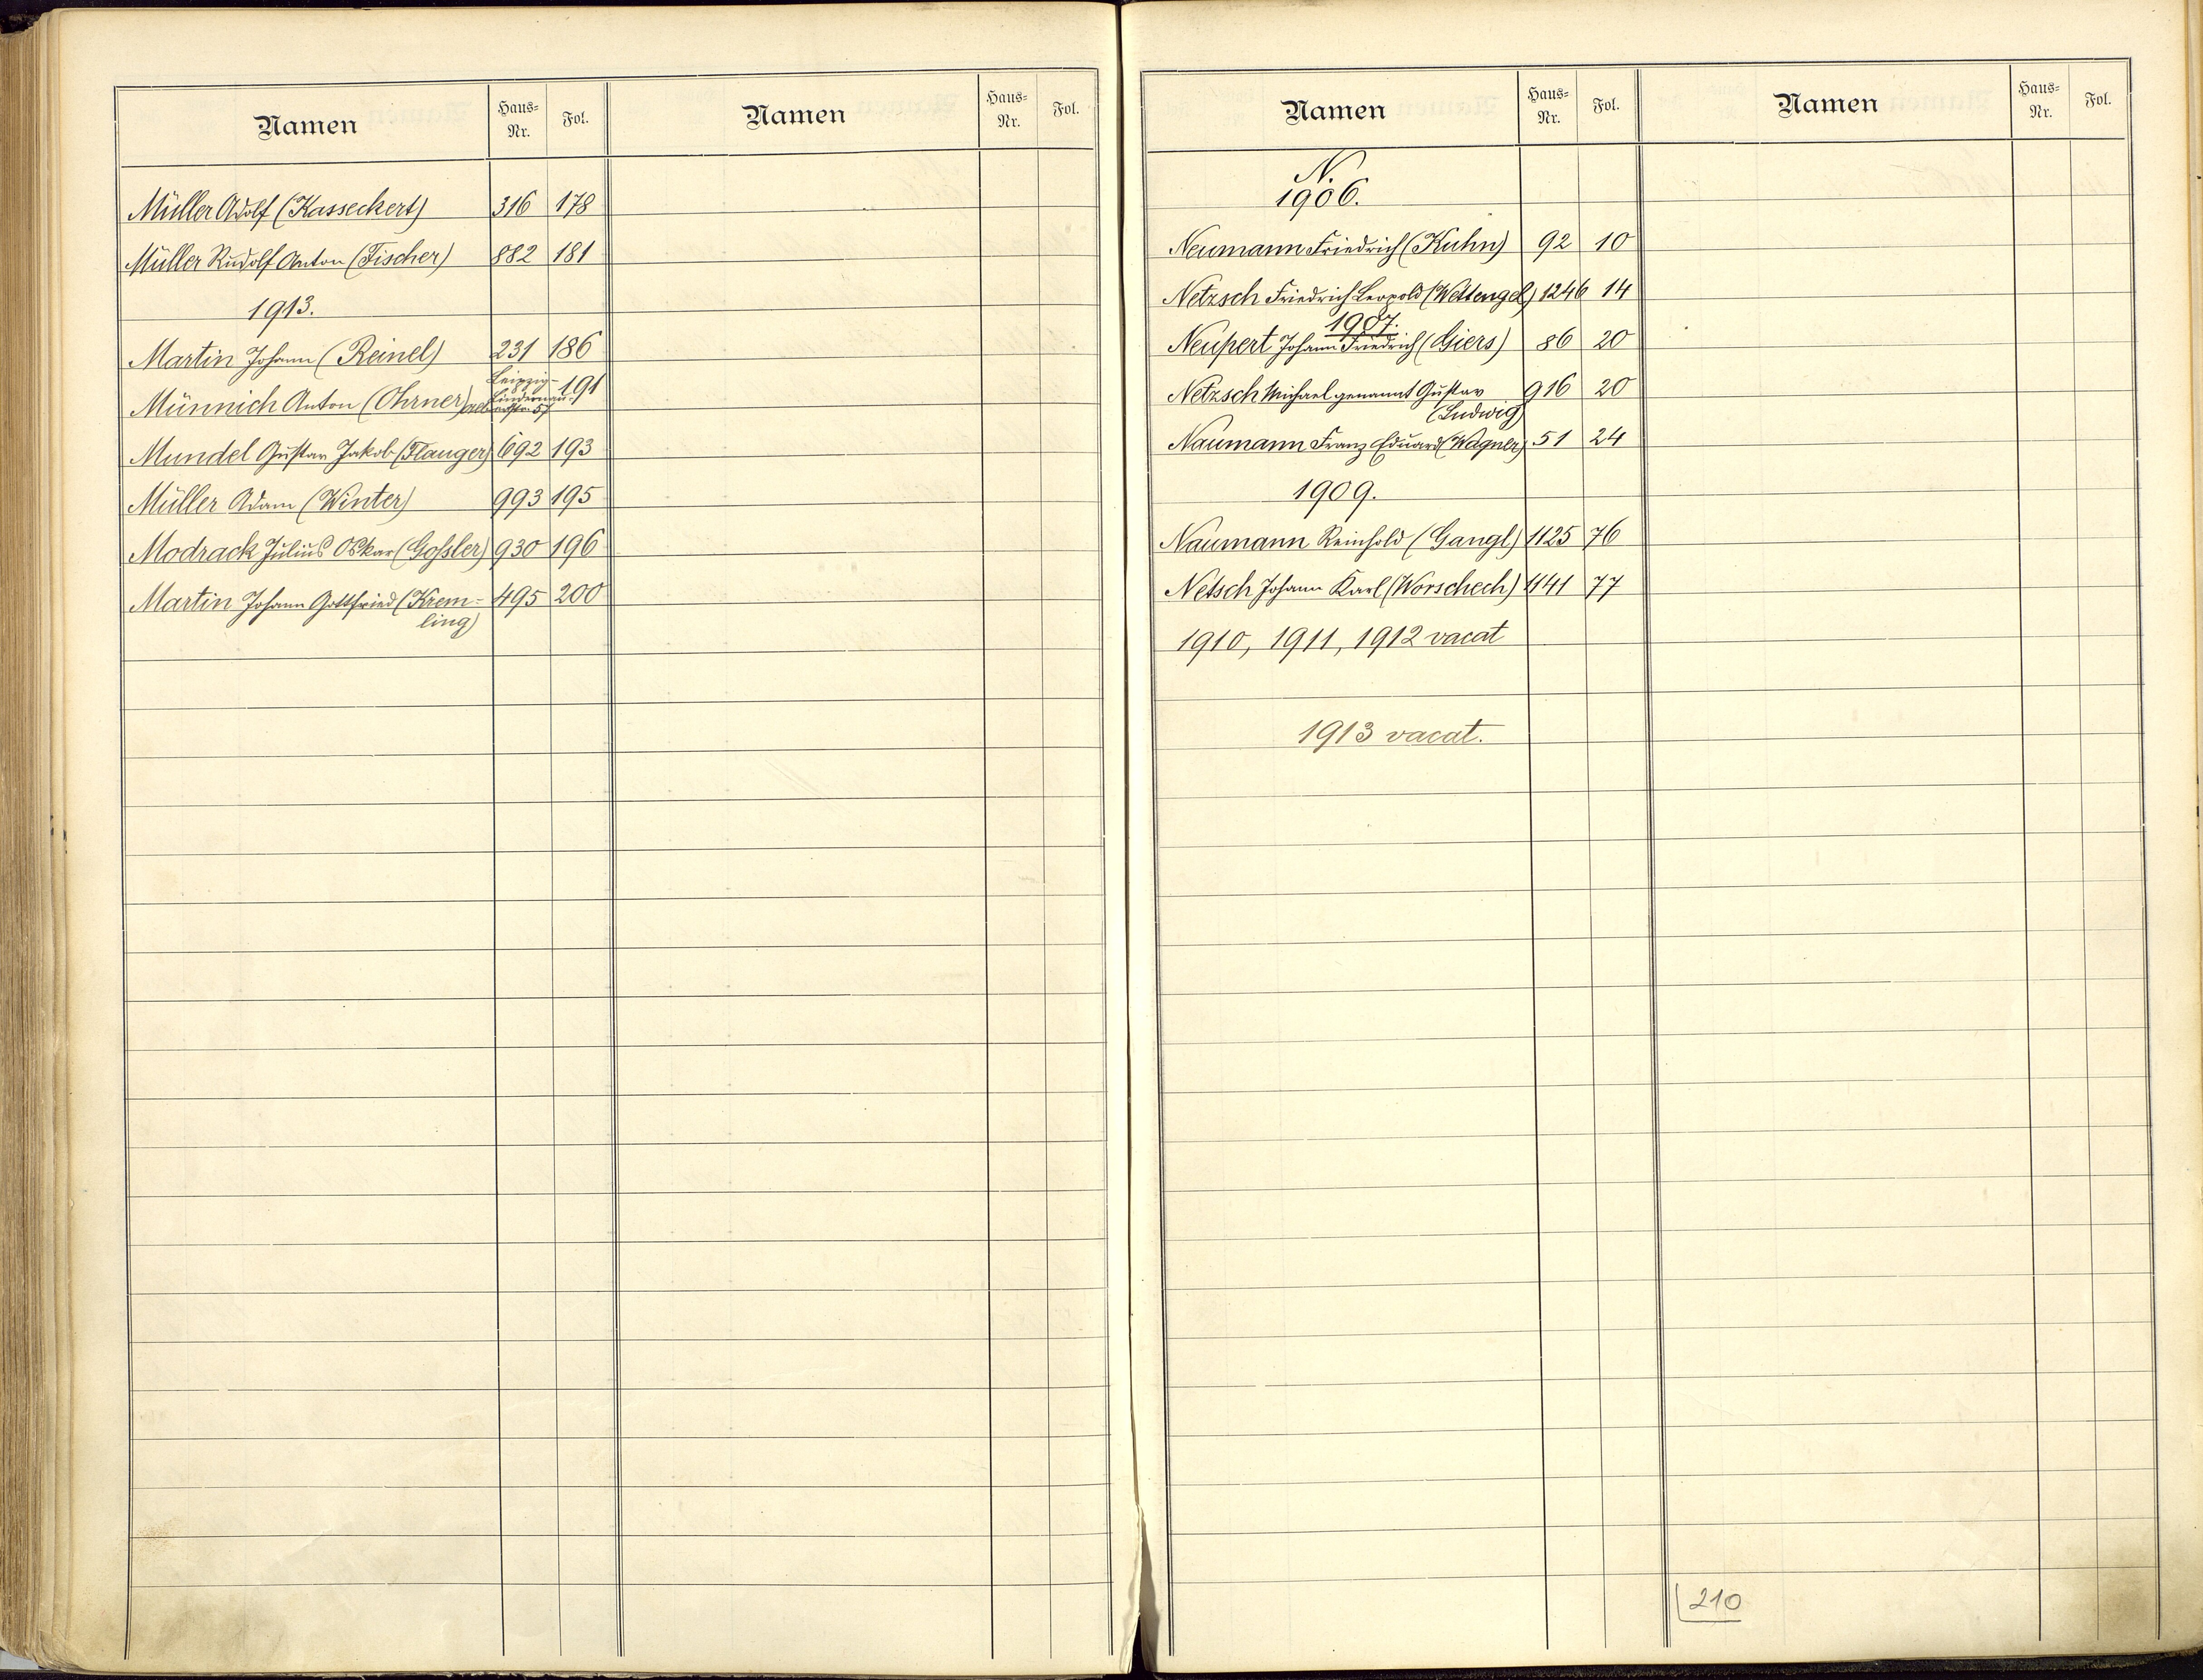 Namen Haus-Nr. Fol. Namen Haus-Nr. Fol.
Müller Adolf (Kasseckert) 316 178
Müller Rudolf Anton (Fischer) 882 181
1913.
Martin Johann (Reinel) 231 186
Leipzig-
Münnich Anton (Ohrner) Lindenau 57 191
Mundel Gustav Jakob (Flauger) 692 193
Müller Adam (Winter) 993 195
Modrack Julius Oskar (Goßler) 930 196
Martin Johann Gottfried (Krem- 495 200
ling)
Namen Haus-Nr. Fol. Namen Haus-Nr. Fol.
N.
1906.
Neumann Friedrich (Kuhn) 92 10
Netzsch Friedrich Leopold (Wettengel) 1246 14
1907.
Neupert Johann Friedrich (Giers) 86 20
Netzsch Michael genannt Gustav 916 20
(Ludwig)
Naumann Franz Eduard (Wagner) 51 24
1909.
Naumann Reinhold (Gangl) 1125 76
Netsch Johann Karl (Worschech) 1141 77
1910, 1911, 1912 vacat
1913 vacat.
210